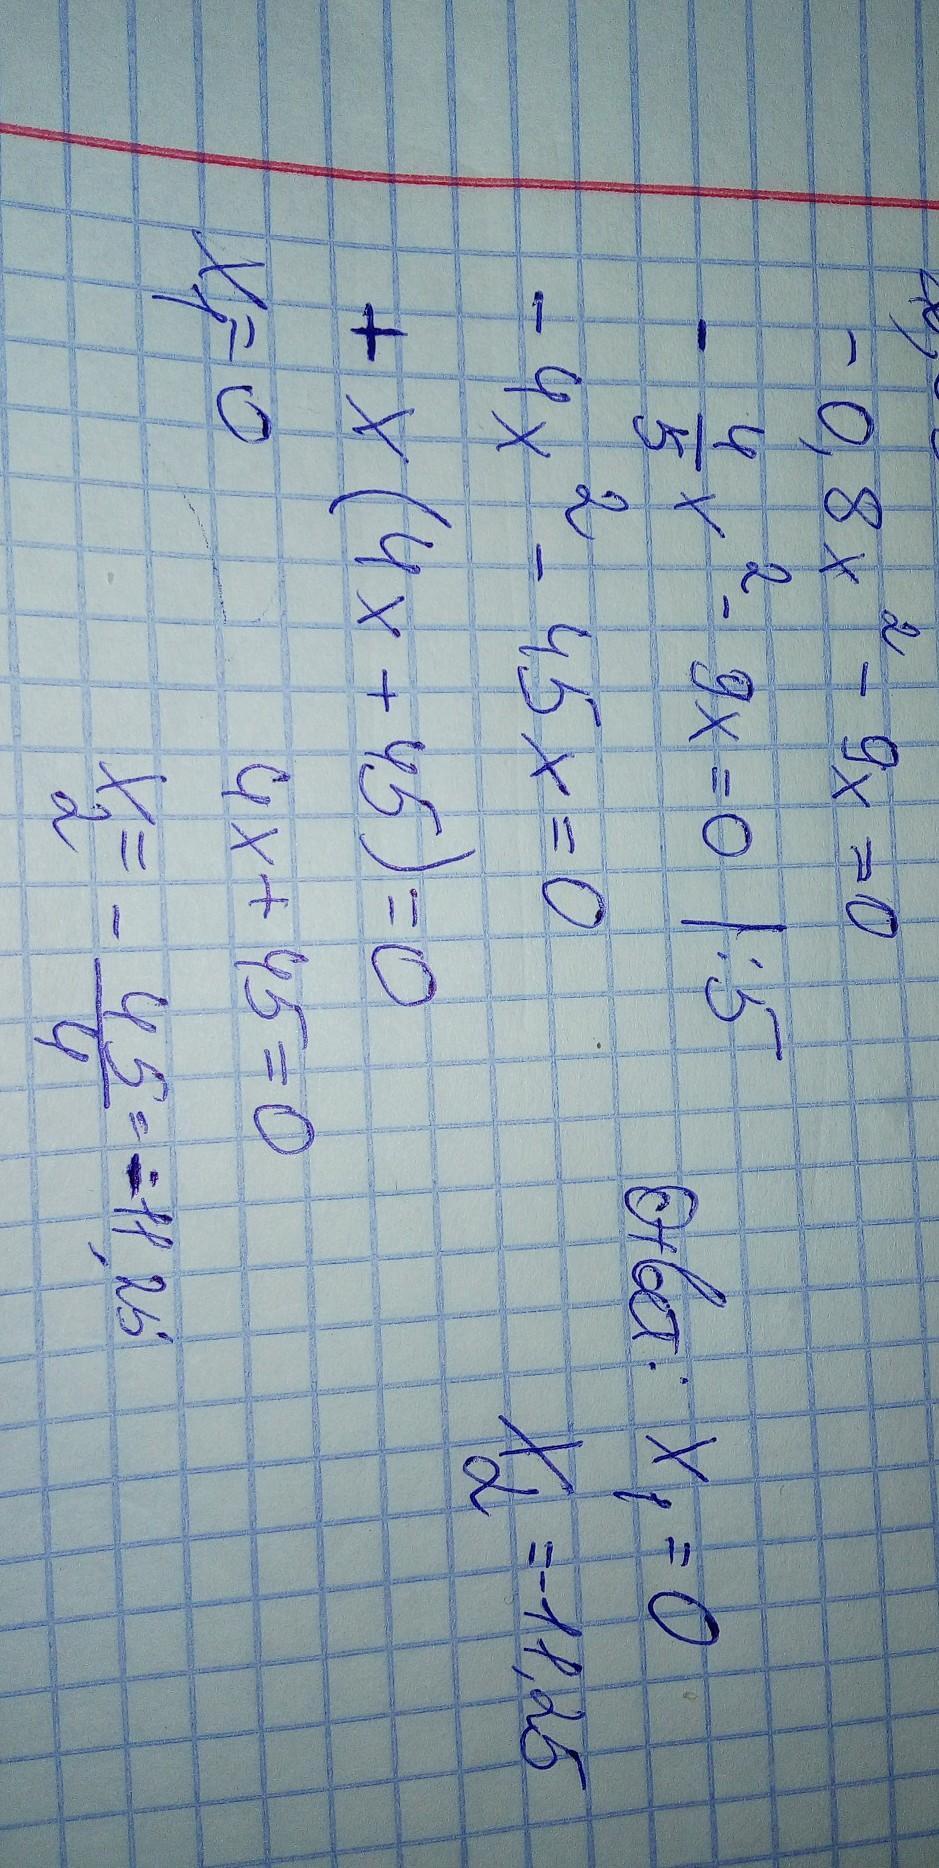 -0,8x² - 9x = 0
-4/5 x² - 9x = 0 | :5
-4x² - 45x = 0
+ x (4x + 45) = 0
x₁ = 0
4x + 45 = 0
x₂ = - 45/4 = -11,25
Ответ: x₁ = 0
x₂ = -11,25